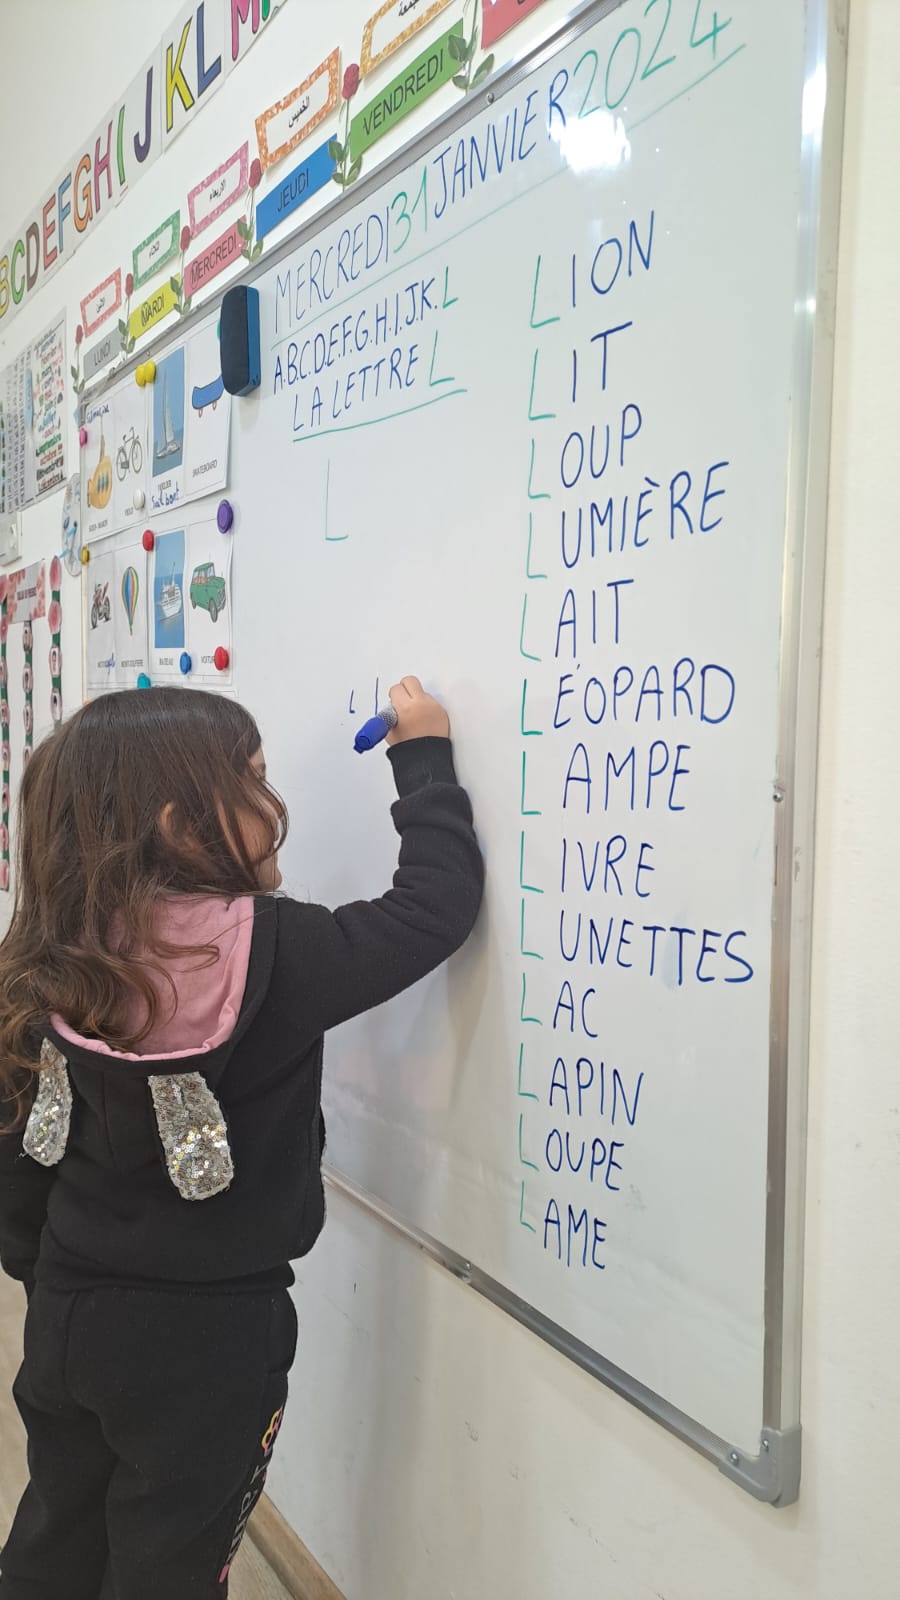 BCDEFGHIJKLM
الخميس
الاربعاء
LUNDI
MARDI
MERCREDI
JEUDI
VENDREDI
MERCREDI 31 JANVIER 2024
A.B.C.D.E.F.G.H.I.J.K.L
LA LETTRE L
L
LION
LIT
LOUP
LUMIÈRE
LAIT
LÉOPARD
LAMPE
LIVRE
LUNETTES
LAC
LAPIN
LOUPE
LAME
SKATEBOARD
VOILIER
MONTGOLFIERE
VOITURE